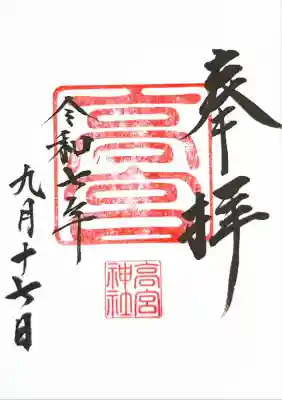 奉拝
高宮
高宮神社
令和七年
九月十七日